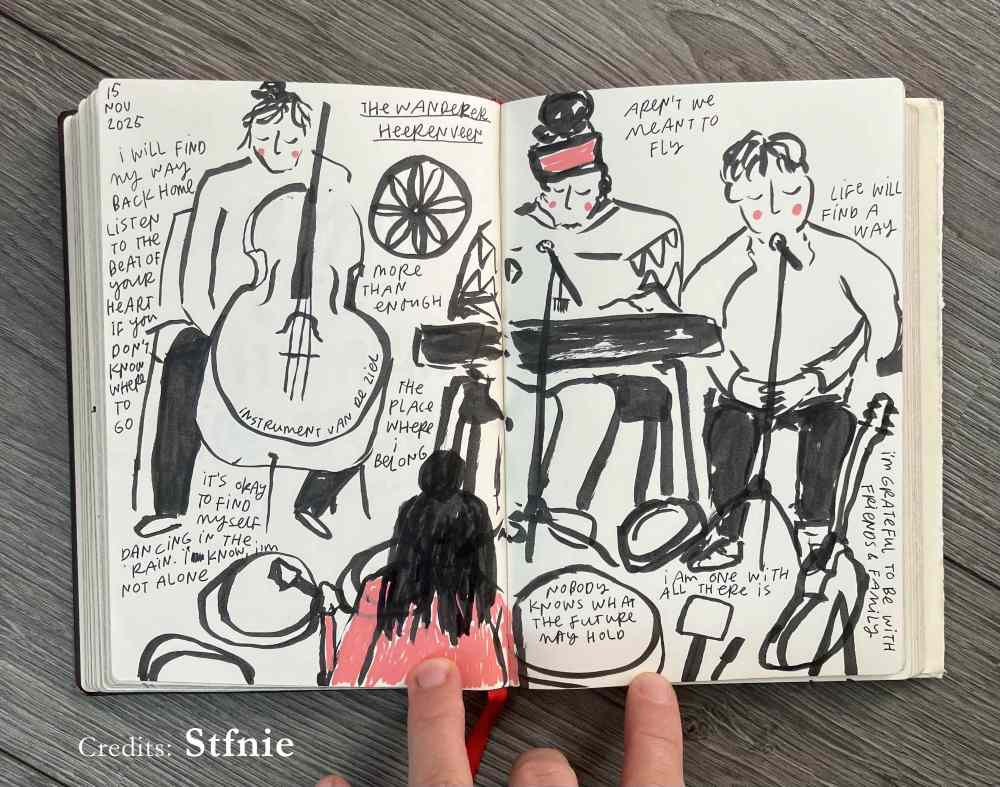 15
NOV
2025
i WILL FIND
MY WAY
BACK HOME
LISTEN
TO THE
BEAT OF
YOUR
HEART
IF YOU
DON'T
KNOW
WHERE
TO
GO
THE WANDERER
HEERENVEEN
MORE
THAN
ENOUGH
INSTRUMENT VAN DE ZIEL
THE
PLACE
WHERE
i
BELONG
iT'S OKAY
TO FIND
MYSELF
DANCING IN THE
RAIN. I KNOW i'm
NOT ALONE
AREN'T WE
MEANT TO
FLY
LIFE WILL
FIND A
WAY
i'm GRATEFUL TO BE WITH
FRIENDS & FAMILY
i AM ONE WITH
ALL THERE iS
NOBODY
KNOWS WHAT
THE FUTURE
MAY HOLD
Credits: Stfnie